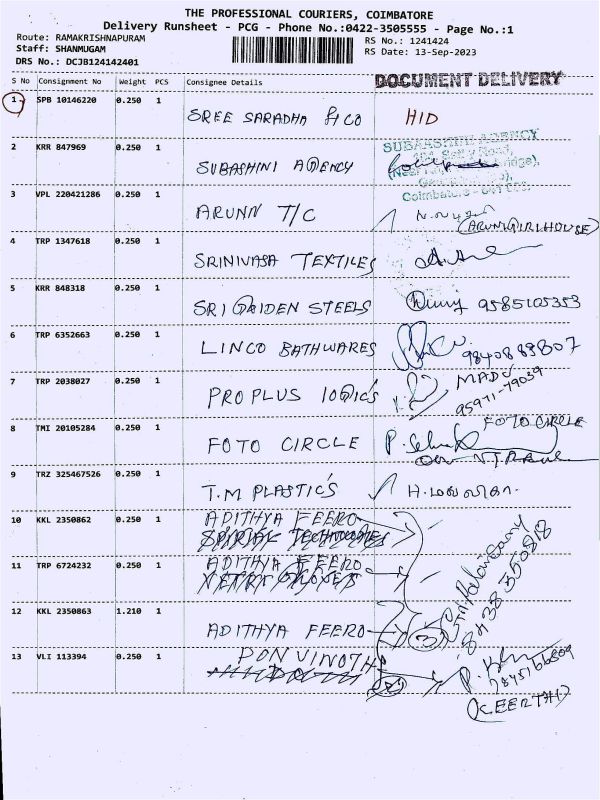 THE PROFESSIONAL COURIERS, COIMBATORE
Delivery Runsheet - PCG - Phone No.:0422-3505555 - Page No.:1
Route: RAMAKRISHNAPURAM
RS No.: 1241424
Staff: SHANMUGAM
RS Date: 13-Sep-2023
DRS No.: DCJB124142401
S No Consignment No Weight PCS Consignee Details DOCUMENT DELIVERY
1 SPB 10146220 0.250 1 SREE SARADHA & CO HID
2 KRR 847969 0.250 1 SUBASHINI AGENCY
SUBAASHINI AGENCY
Coimbatore - 641
3 VPL 220421286 0.250 1 ARUNN T/C
(ARUNGIRI HOUSE)
4 TRP 1347618 0.250 1 SRINIVASA TEXTILES
5 KRR 848318 0.250 1 SRI GAIDEN STEELS 9585105353
6 TRP 6352663 0.250 1 LINCO BATHWARES 9840889807
7 TRP 2038027 0.250 1 PROPLUS LOGIC'S MADU
95971-79039
8 TMI 20105284 0.250 1 FOTO CIRCLE FOTO CIRCLE
9 TRZ 325467526 0.250 1 T.M PLASTIC'S
10 KKL 2350862 0.250 1 ADITHYA FEERO
11 TRP 6724232 0.250 1 ADITHYA FEERO
12 KKL 2350863 1.210 1 ADITHYA FEERO 3
13 VLI 113394 0.250 1 PON VINOTH
(KEERTHI)